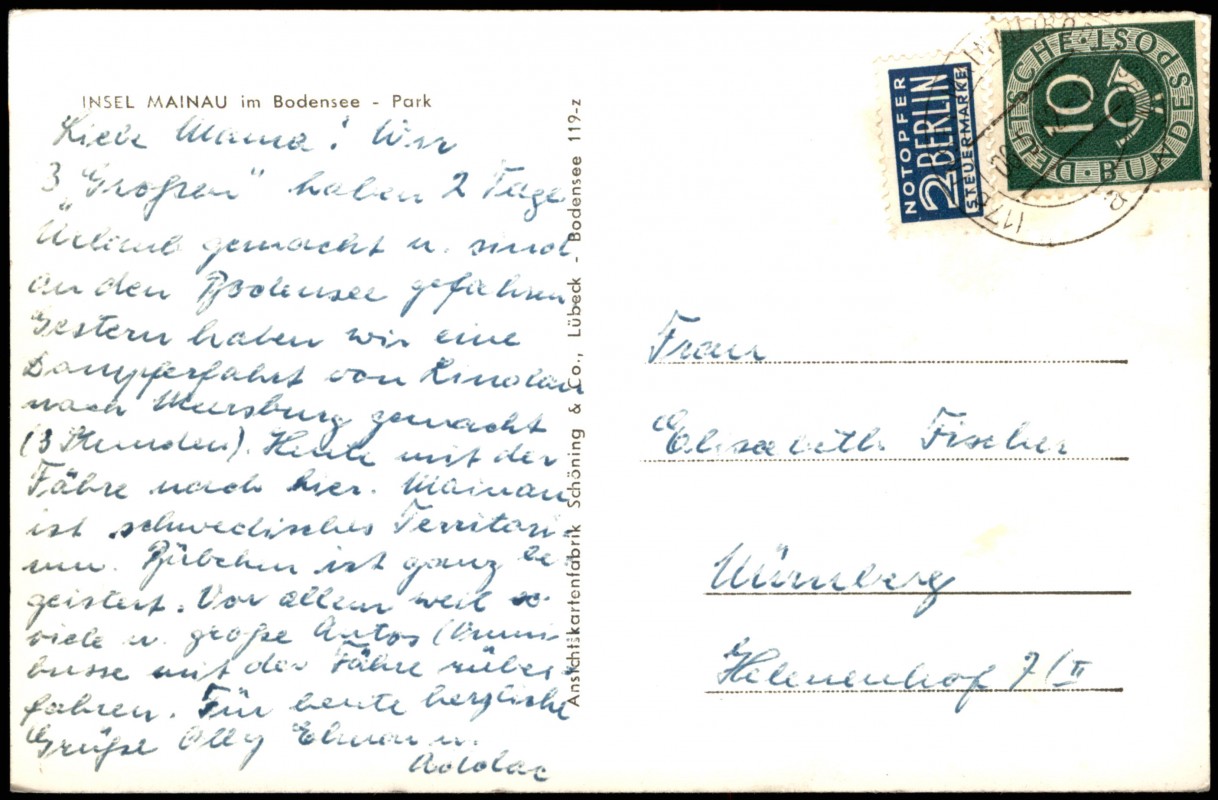 INSEL MAINAU im Bodensee - Park
Liebe Mama! Wir
3 „Großen" haben 2 Tage
Urlaub gemacht u. sind
an den Bodensee gefahren
Gestern haben wir eine
Dampferfahrt von Lindau
nach Meersburg gemacht
(3 Stunden). Heute mit der
Fähre nach hier. Mainau
ist schwedisches Territori-
um. Bübchen ist ganz be-
geistert. Vor allem weil so
viele u. große Autos (Omni-
busse mit der Fähre rüber
fahren. Für heute herzliche
Grüße Olly Elmar u.
Ansichtskartenfabrik Schöning & Co., Lübeck - Bodensee 119-z
NOTOPFER
2 BERLIN
STEUERMARKE
DEUTSCHE BUNDESPOST
10
Frau
Elisabeth Fischer
Nürnberg
Helenenhof 7/II